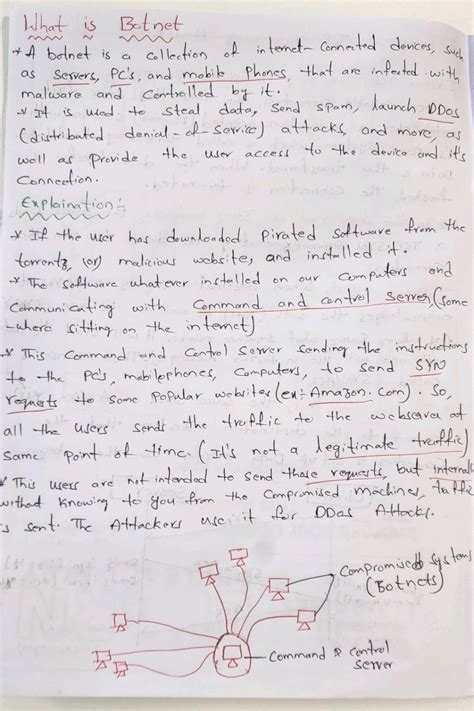 What is Botnet
* A botnet is a collection of internet-connected devices, such
as servers, PC's, and mobile phones, that are infected with
malware and controlled by it.
* It is used to steal data, send spam, launch DDos
(distributed denial-of-service) attacks, and more, as
well as provide the user access to the device and it's
Connection.
Explaination:-
* If the user has downloaded pirated software from the
torrents, (or) malicious website, and installed it.
* The software whatever installed on our computers and
Communicating with Command and control server (some
-where sitting on the internet)
* This Command and control server sending the instructions
to the PC's, mobilephones, computers, to send SYN
requests to some popular websites (ex:- Amazon.com). So,
all the users sends the traffic to the webserver at
same point of time. (It's not a legitimate traffic)
* This users are not intended to send those requests, but internally
without knowing to you from the compromised machines, traffic
is sent. The Attackers use it for DDos Attacks.
Compromised systems
(Botnets)
Command & control
server